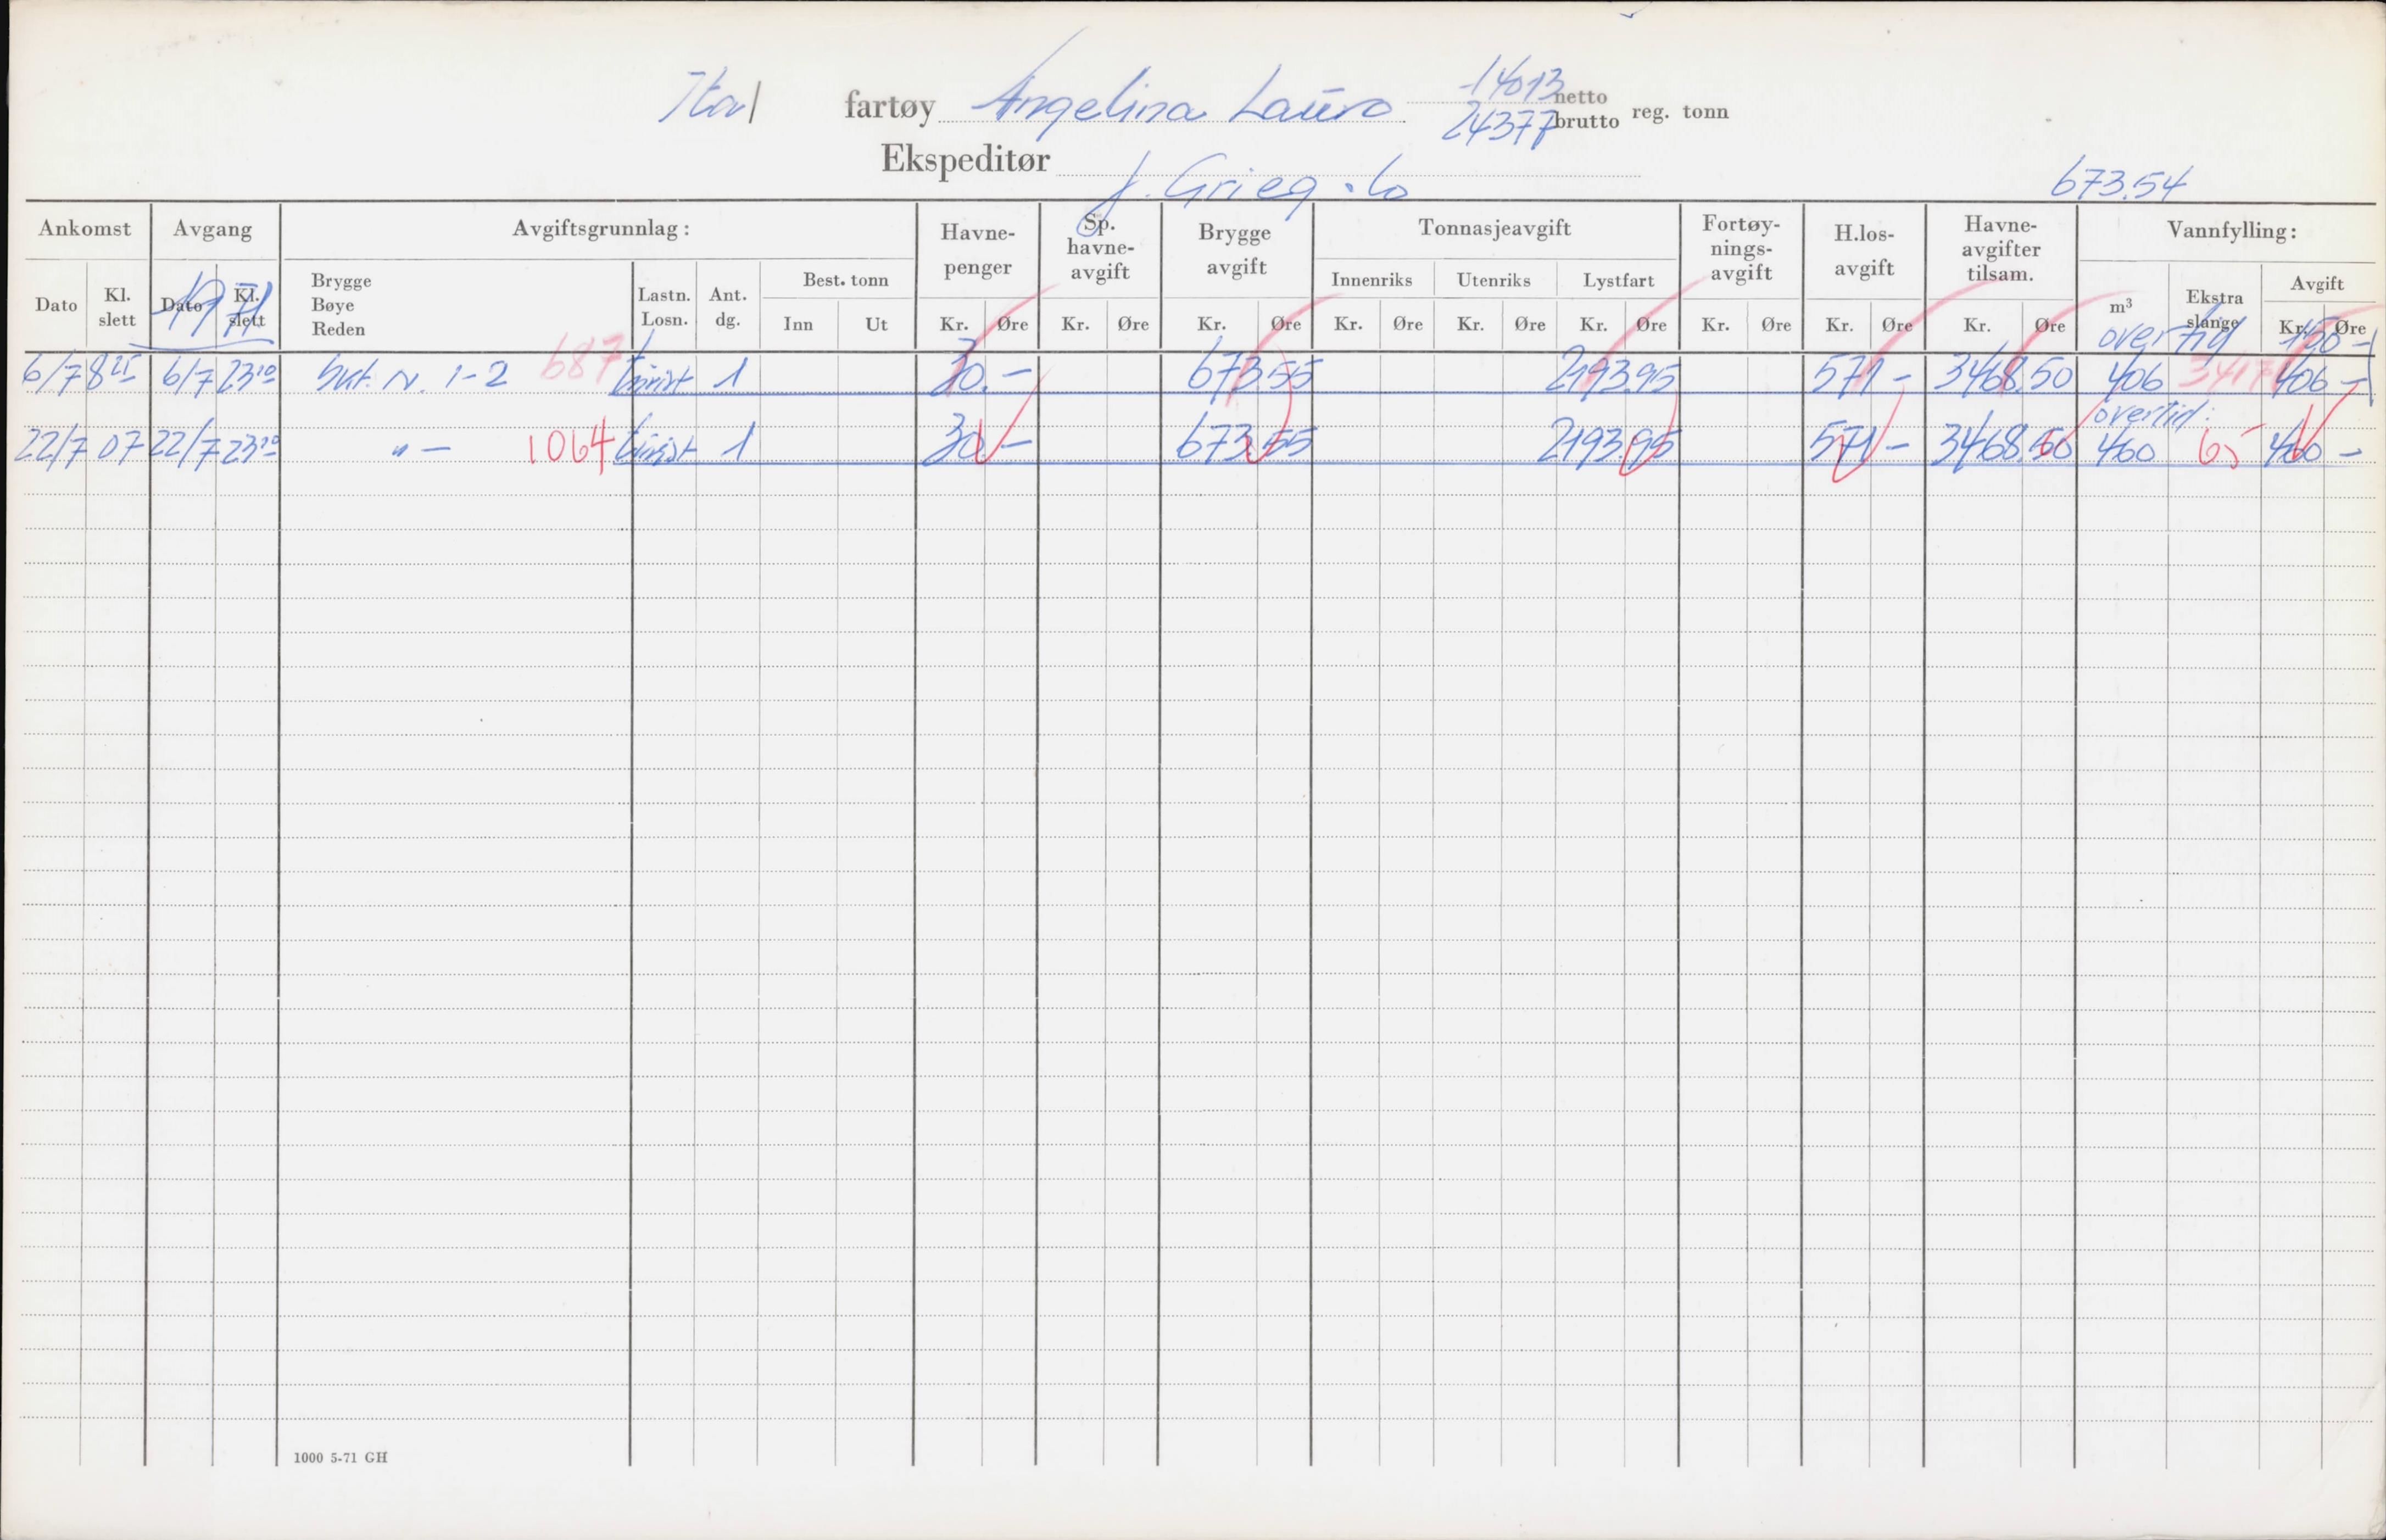 Ital fartøy Angelina Lauro 14013 netto
24377 brutto reg. tonn
Ekspeditør J. Grieg . Co
673.54
Ankomst Avgang Avgiftsgrunnlag: Havne-penger Sp. havne-avgift Brygge avgift Tonnasjeavgift Fortøy-nings-avgift H.los-avgift Havne-avgifter tilsam. Vannfylling:
Dato Kl. slett Dato Kl. slett Brygge Bøye Reden Lastn. Losn. Ant. dg. Best. tonn Innenriks Utenriks Lystfart m³ Ekstra slange Avgift
1971
Inn Ut Kr. Øre Kr. Øre Kr. Øre Kr. Øre Kr. Øre Kr. Øre Kr. Øre Kr. Øre Kr. Øre Kr. Øre
6/7 8 6/7 23¹⁰ Skt. N. 1-2 687 turist 1 30.- 673.55 2193.95 571- 3468.50 406 406-
overtid:
22/7 07 22/7 23 " - 1064 turist 1 30.- 673.55 2193.95 571- 3468.50 460 65 460-
1000 5-71 GH